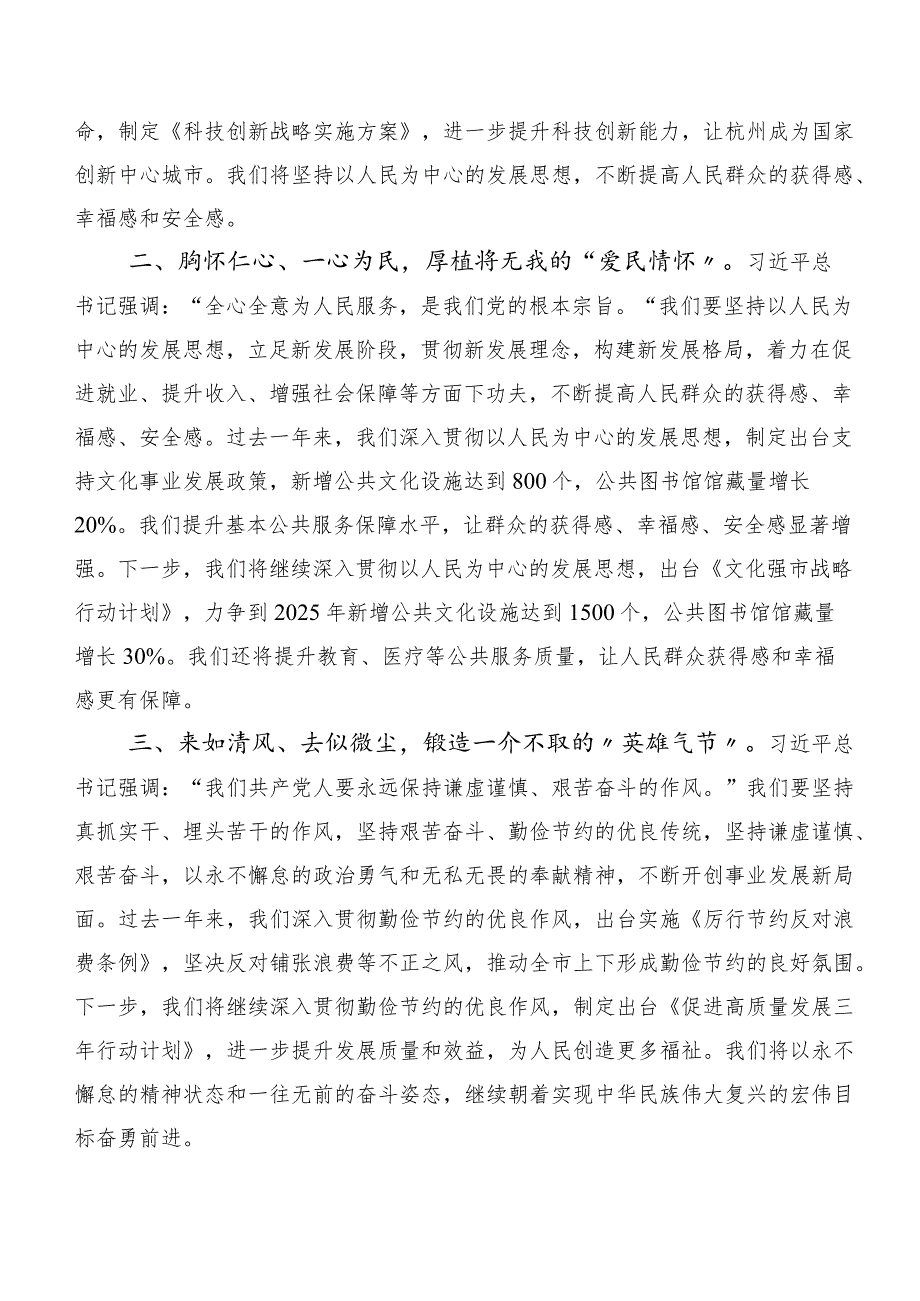 命，制定《科技创新战略实施方案》，进一步提升科技创新能力，让杭州成为国家
创新中心城市。我们将坚持以人民为中心的发展思想，不断提高人民群众的获得感、
幸福感和安全感。
二、胸怀仁心、一心为民，厚植将无我的“爱民情怀〃。习近平总
书记强调：“全心全意为人民服务，是我们党的根本宗旨。“我们要坚持以人民为
中心的发展思想，立足新发展阶段，贯彻新发展理念，构建新发展格局，着力在促
进就业、提升收入、增强社会保障等方面下功夫，不断提高人民群众的获得感、幸
福感、安全感。过去一年来，我们深入贯彻以人民为中心的发展思想，制定出台支
持文化事业发展政策，新增公共文化设施达到 800 个，公共图书馆馆藏量增长
20%。我们提升基本公共服务保障水平，让群众的获得感、幸福感、安全感显著增
强。下一步，我们将继续深入贯彻以人民为中心的发展思想，出台《文化强市战略
行动计划》，力争到 2025 年新增公共文化设施达到 1500 个，公共图书馆馆藏量
增长 30%。我们还将提升教育、医疗等公共服务质量，让人民群众获得感和幸福
感更有保障。
三、来如清风、去似微尘，锻造一介不取的〃英雄气节〃。习近平总
书记强调：“我们共产党人要永远保持谦虚谨慎、艰苦奋斗的作风。”我们要坚持
真抓实干、埋头苦干的作风，坚持艰苦奋斗、勤俭节约的优良传统，坚持谦虚谨慎、
艰苦奋斗，以永不懈怠的政治勇气和无私无畏的奉献精神，不断开创事业发展新局
面。过去一年来，我们深入贯彻勤俭节约的优良作风，出台实施《厉行节约反对浪
费条例》，坚决反对铺张浪费等不正之风，推动全市上下形成勤俭节约的良好氛围。
下一步，我们将继续深入贯彻勤俭节约的优良作风，制定出台《促进高质量发展三
年行动计划》，进一步提升发展质量和效益，为人民创造更多福祉。我们将以永不
懈怠的精神状态和一往无前的奋斗姿态，继续朝着实现中华民族伟大复兴的宏伟目
标奋勇前进。